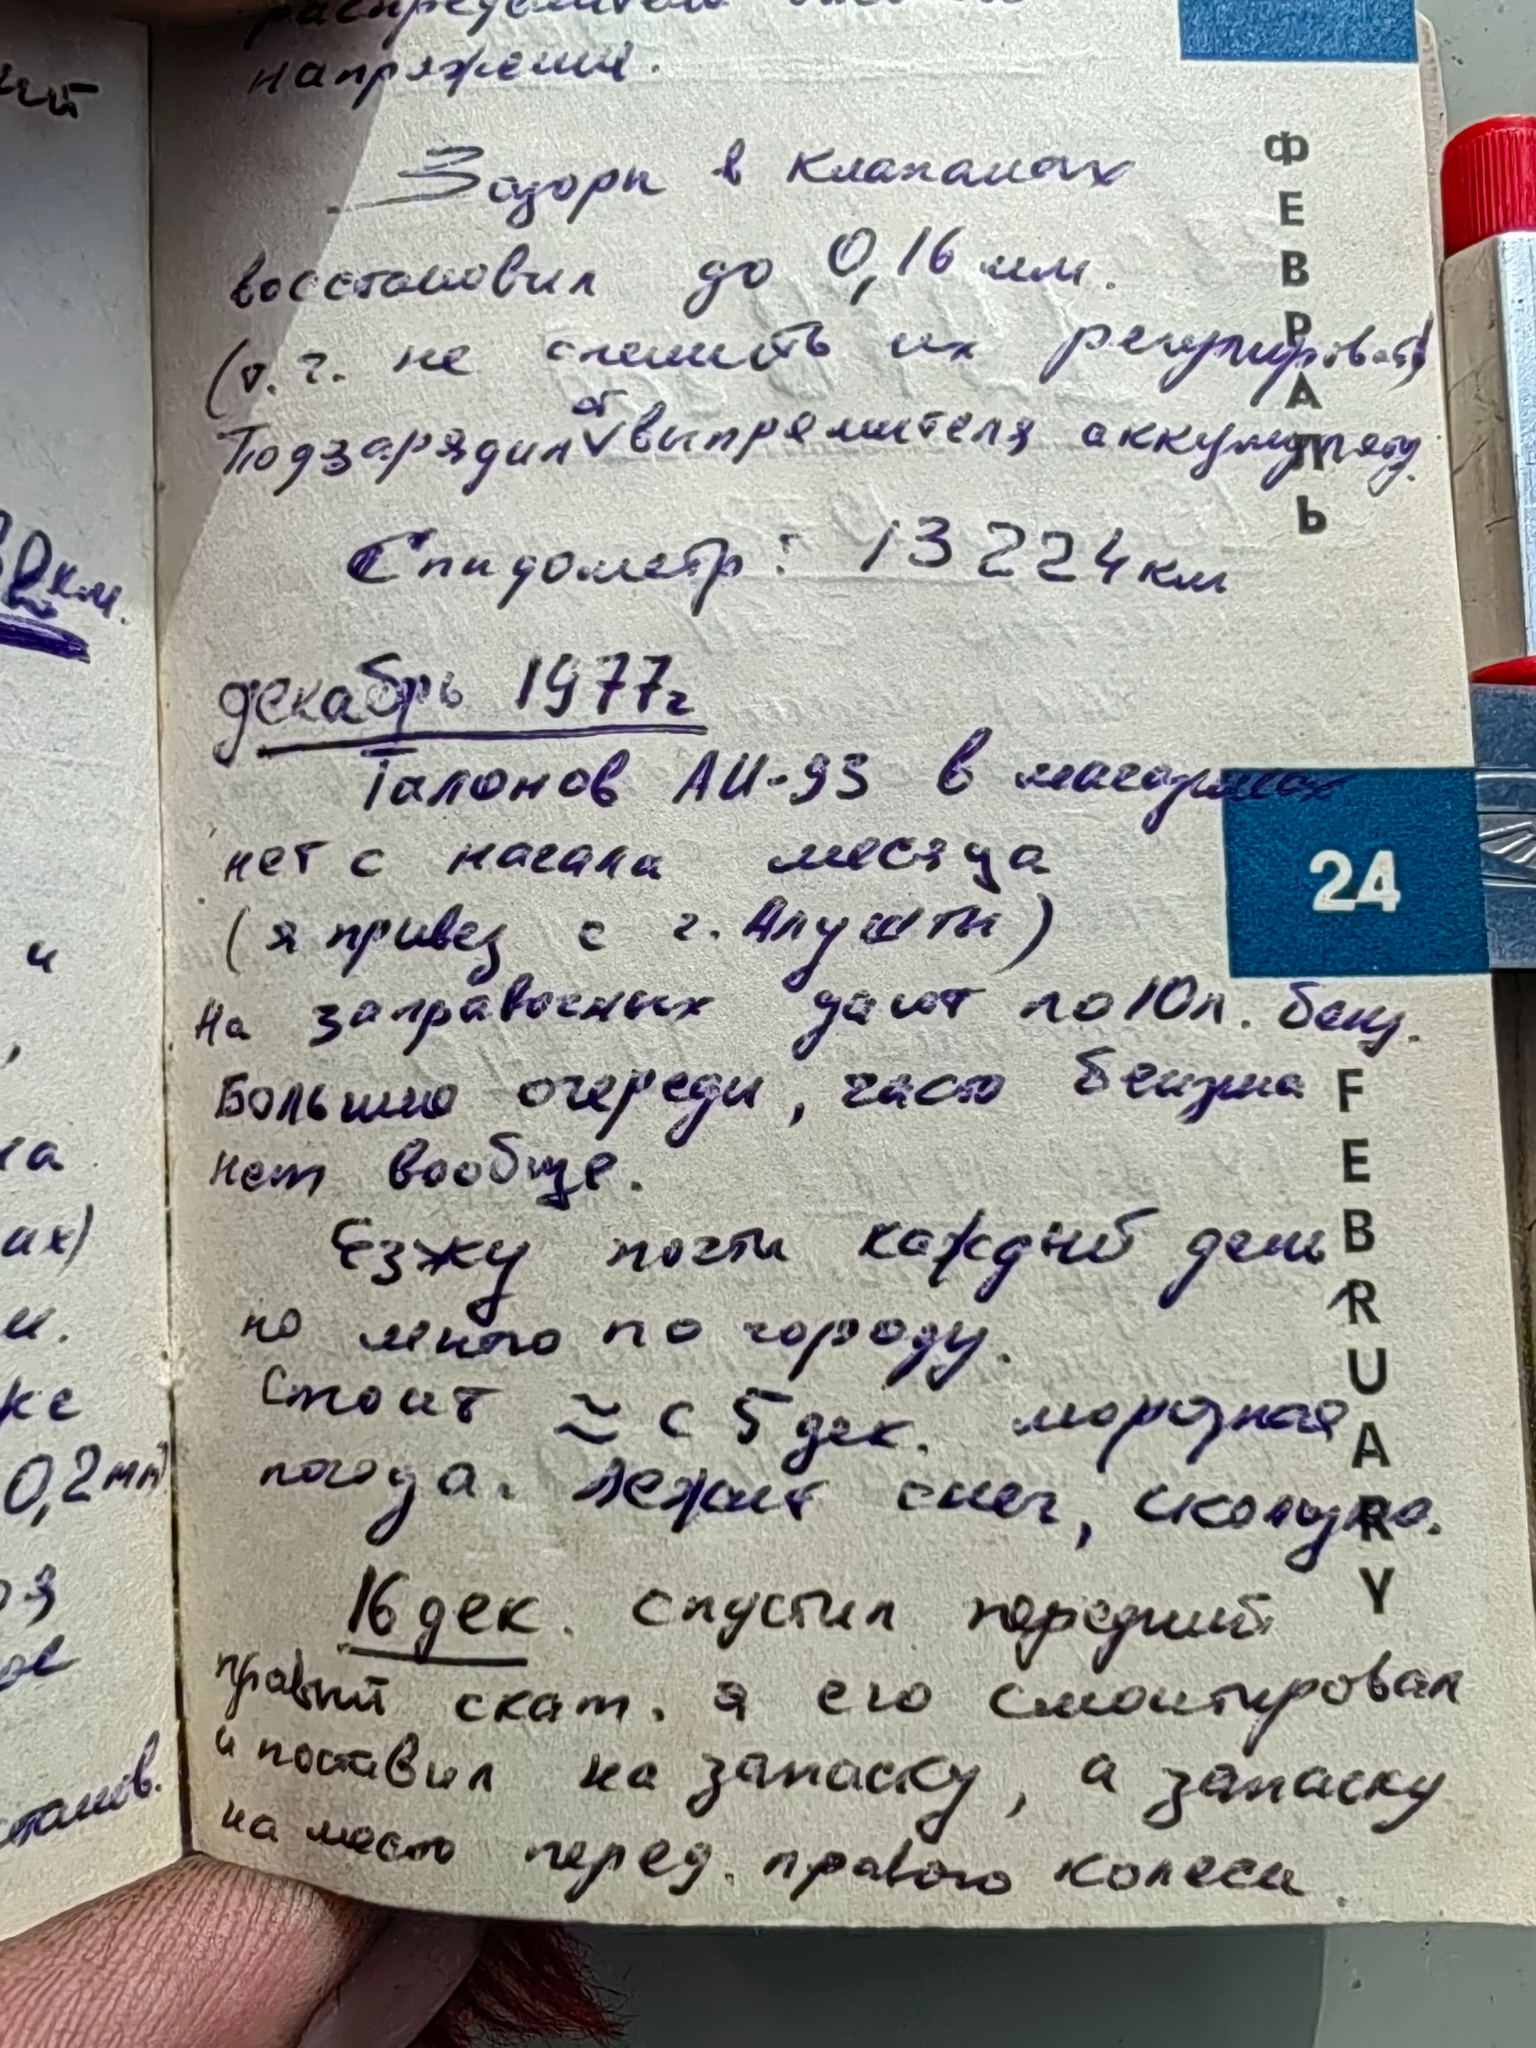 напряжения.
Зазоры в клапанах
восстановил до 0,16 мм.
(т.г. не спешить их регулировать)
от
Подзарядил выпрямителя аккумулят.
Спидометр: 13224 км
декабрь 1977г
Талонов АИ-93 в магазинах
нет с начала месяца
(я привез с г. Алушты)
На заправочных дают по 10л. бенз.
Большие очереди, часто бензина
нет вообще.
Езжу почти каждый день
но много по городу.
Стоит ≈ с 5 дек. морозная
погода. Лежит снег, скользко.
16 дек. спустил передний
правый скат. я его смонтировал
и поставил на запаску, а запаску
на место перед. правого колеса.
ФЕВРАЛЬ
24
FEBRUARY
км.
и
их)
0,2мм
станов.